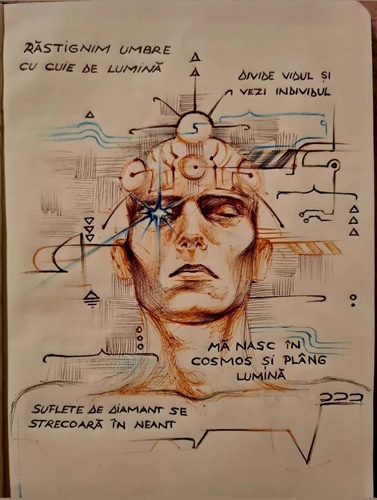 RĂSTIGNIM UMBRE
CU CUIE DE LUMINĂ
DIVIDE VIDUL ȘI
VEZI INDIVIDUL
S
MĂ NASC ÎN
COSMOS ȘI PLÂNG
LUMINĂ
SUFLETE DE DIAMANT SE
STRECOARĂ ÎN NEANT